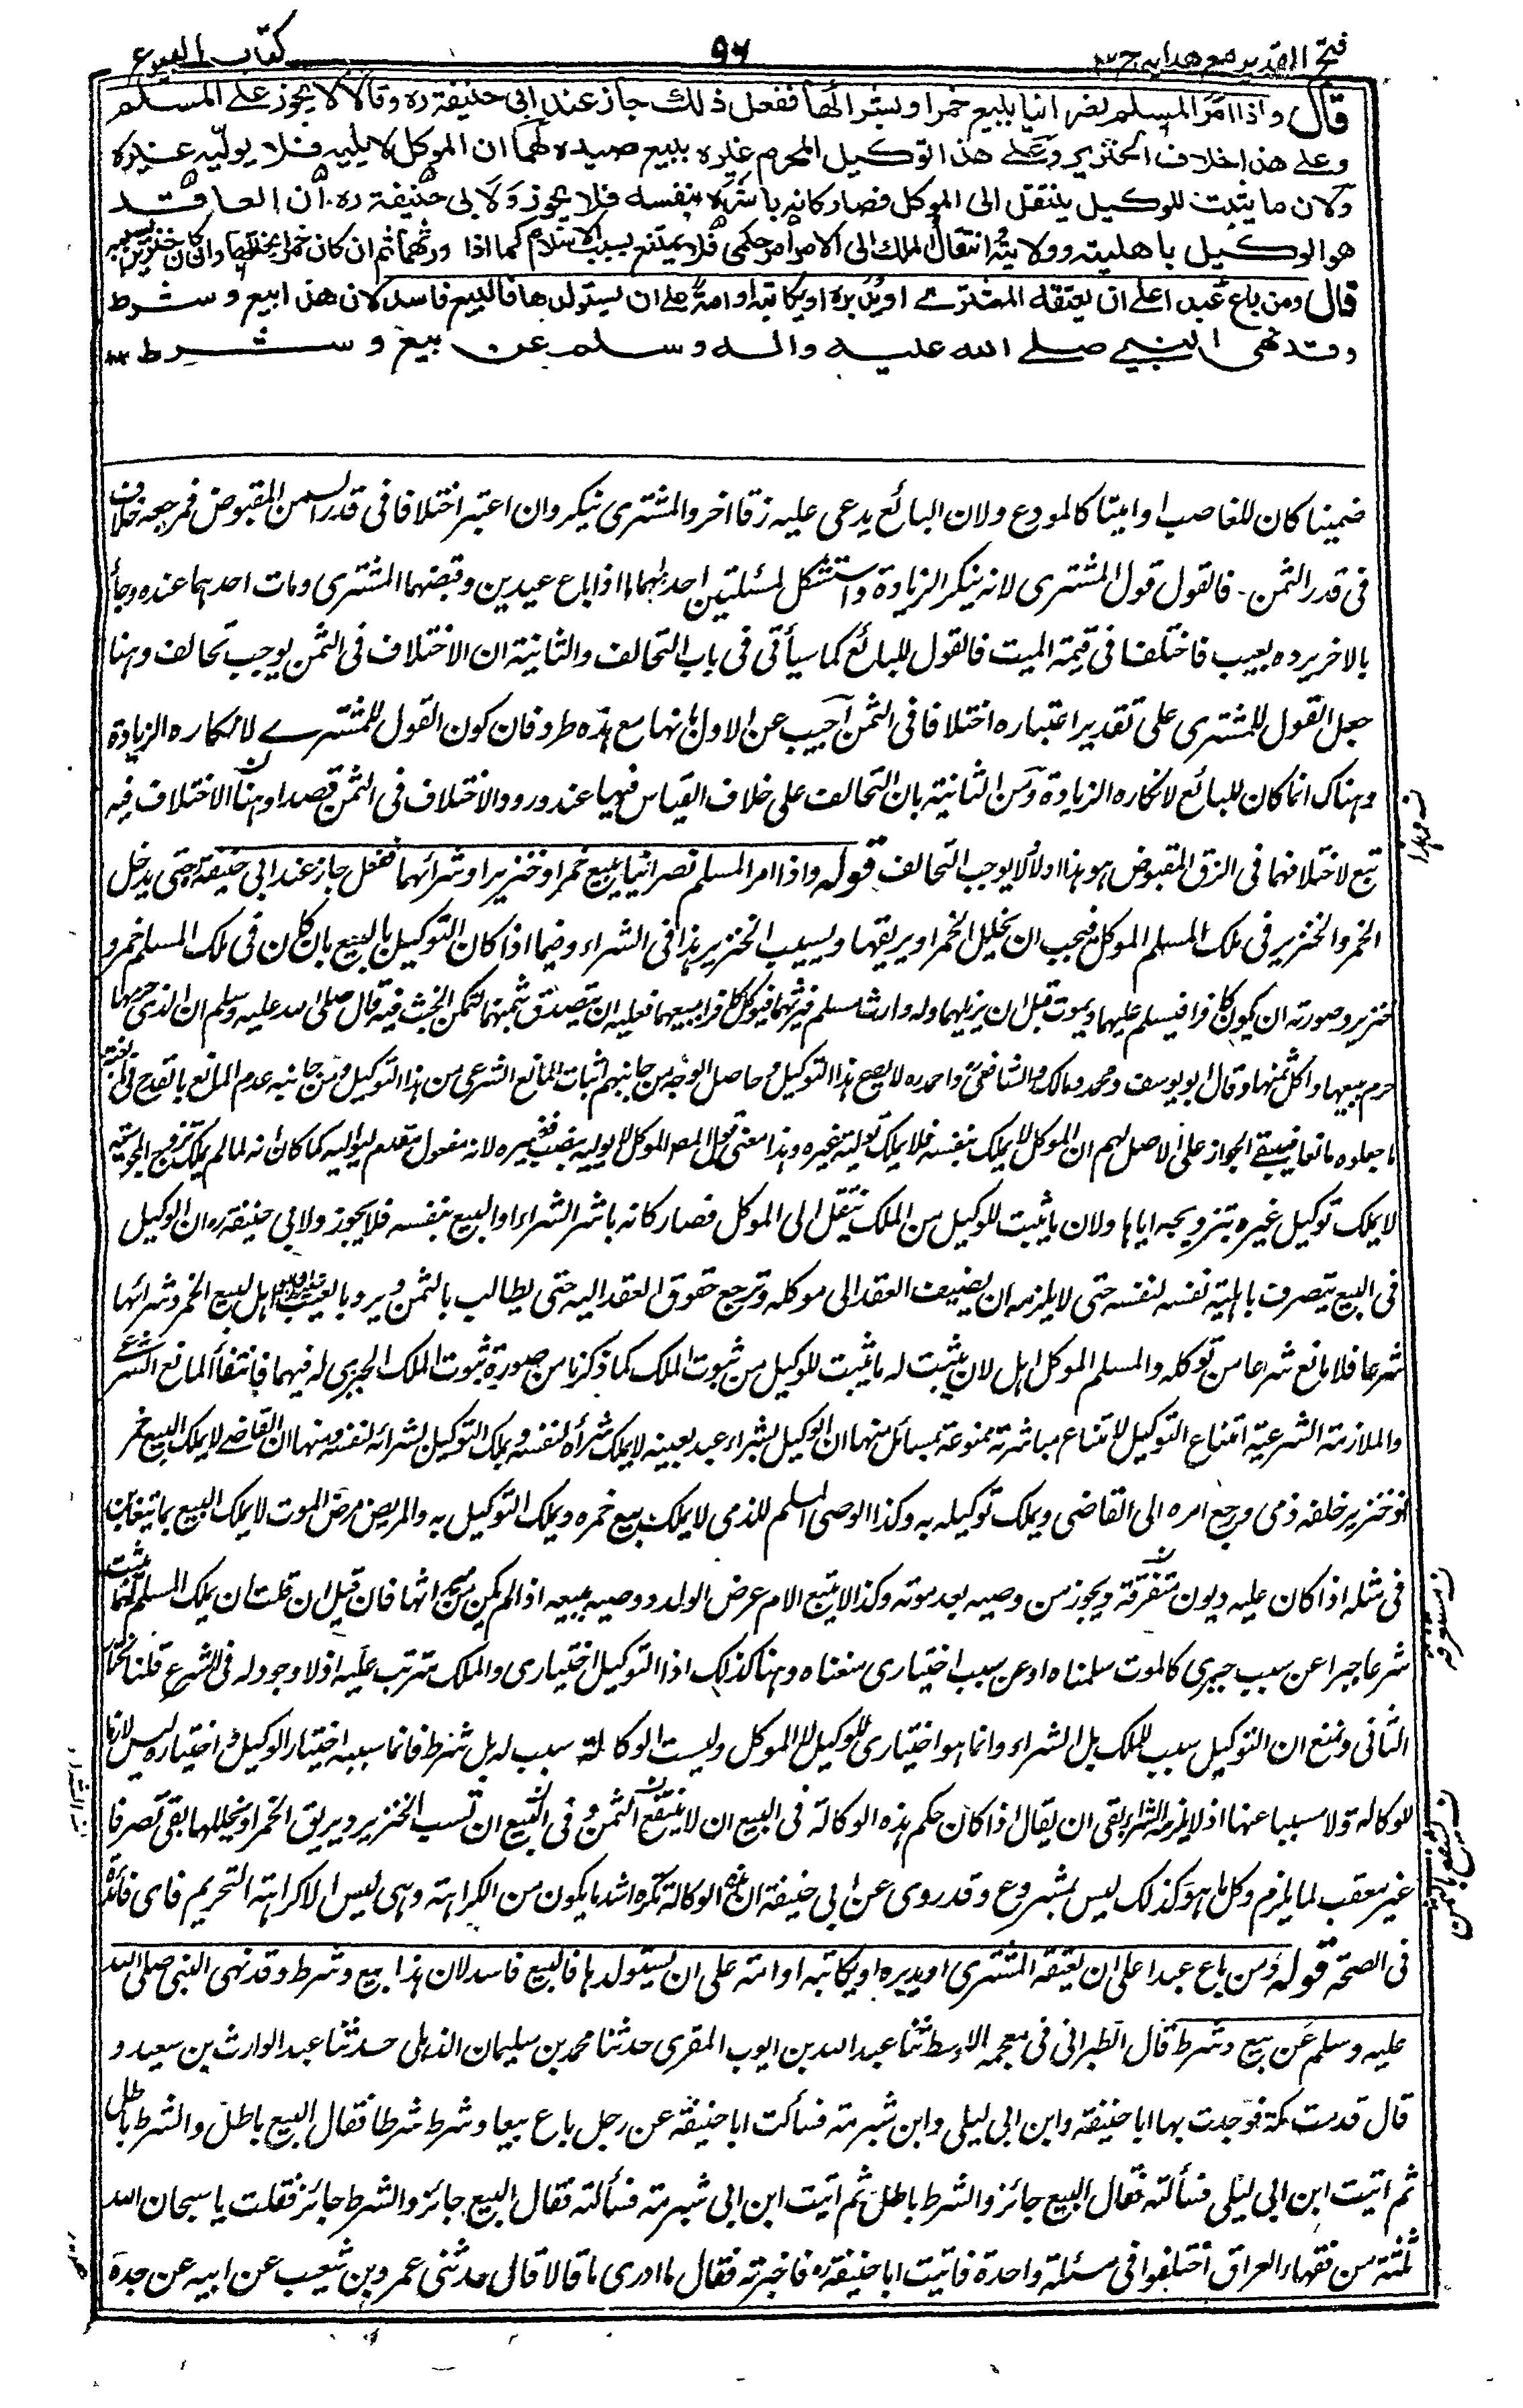 فتح القدير مع هدايه ج٣
٩٦
كتاب البيوع
قال واذا امر المسلم نصرانيا ببيع خمر او بشرائها ففعل ذلك جاز عند ابى حنيفة ره وقالا لا يجوز على المسلم
وعلى هذا خلاف الخنزير وعلى هذا توكيل المحرم غيره ببيع صيده لهما ان الموكل لا يليه فلا يوليه غيره
ولان ما يثبت للوكيل ينتقل الى الموكل فصار كانه باشره بنفسه فلا يجوز ولابى حنيفة ره ان العاقد
هو الوكيل باهليته وولايته وانتقال الملك الى الآمر امر حكمى فلا يمتنع بسبب الاسلام كما اذا ورثهما ثم ان كان خمرا يخللها وان كان خنزيرا يسيبه
قال ومن باع عبدا على ان يعتقه المشترى او يدبره او يكاتبه او امة على ان يستولدها فالبيع فاسد لان هذا بيع وشرط
وقد نهى النبى صلى الله عليه واله وسلم عن بيع وشرط
ضمينا كان كالغاصب او امينا كالمودع ولان البائع يدعى عليه زقا اخر والمشترى ينكر وان اعتبر اختلافا فى قدر السمن المقبوض فمرجعه خلاف
فى قدر الثمن - فالقول قول المشترى لانه ينكر الزيادة واستشكل بمسئلتين احدهما ما اذا باع عبدين وقبضهما المشترى ومات احدهما عنده وجاء
بالاخر يرده بعيب فاختلفا فى قيمة الميت فالقول للبائع كما سيأتى فى باب التحالف والثانية ان الاختلاف فى الثمن يوجب تحالف وهنا
جعل القول للمشترى على تقدير اعتباره اختلافا فى الثمن اجيب عن الاول بانها مع هذه طرد فان كون القول للمشترى لانكاره الزيادة
وهناك انما كان للبائع لانكاره الزيادة وعن الثانية بان التحالف على خلاف القياس فيهما عند ورود الاختلاف فى الثمن قصدا وهنا الاختلاف فيه
تبع لاختلافهما فى الزق المقبوض اهو هذا اولا لا يوجب التحالف قوله واذا امر المسلم نصرانيا ببيع خمر او خنزير او شرائهما ففعل جاز عند ابى حنيفة حتى يدخل
الخمر والخنزير فى ملك المسلم الموكل فيجب ان يخلل الخمر او يريقها ويسيب الخنزير هذا فى الشراء وفيما اذا كان التوكيل بالبيع بان كان فى ملك المسلم خمر و
خنزير وصورته ان يكون كافرا فيسلم عليهما ويموت قبل ان يزيلهما وله وارث مسلم فيرثهما فيوكل كافرا ببيعهما فعليه ان يتصدق بثمنهما لتمكن الخبث فيه قال صلى الله عليه وسلم ان الذى حرمها
حرم بيعها واكل ثمنها وقال ابو يوسف ومحمد ومالك والشافعى واحمد ره لا يصح هذا التوكيل وحاصل الوجه من جانبهم اثبات المانع الشرعى من هذا التوكيل ومن جانبه عدم المانع بالقدح فى
ما جعلوه مانعا فيبقى الجواز على الاصل لهم ان الموكل لا يملك بنفسه فلا يملك تولية غيره وهذا معنى قول المص الموكل لا يوليه بنصب غيره لانه مفعول مقدم ليواليه كما كان انه لما لم يملك تزوج المجوسية
لا يملك توكيل غيره بتزويجه اياها ولان ما يثبت للوكيل من الملك ينتقل الى الموكل فصار كانه باشر الشراء او البيع بنفسه فلا يجوز ولابى حنيفة ره ان الوكيل
فى البيع يتصرف باهلية نفسه لنفسه حتى لا يلزمه ان يضيف العقد الى موكله وترجع حقوق العقد اليه حتى يطالب بالثمن ويرد بالعيب اهل لبيع الخمر وشرائها
شرعا فلا مانع شرعا من توكله والمسلم الموكل اهل لان يثبت له ما يثبت للوكيل من ثبوت الملك كما ذكرنا من صورة ثبوت الملك الجبرى له فيهما فانتفى المانع الشرعى
والملازمة الشرعية امتناع التوكيل لامتناع مباشرته ممنوعة بمسائل منها ان الوكيل بشراء عبد بعينه لا يملك شراءه لنفسه ويملك التوكيل بشرائه لنفسه ومنها ان القاضى لا يملك البيع خمر
او خنزير خلفه ذمى ورجع امره الى القاضى ويملك توكيله به وكذا الوصى المسلم للذمى لا يملك بيع خمره ويملك التوكيل به والمريض مرض الموت لا يملك البيع بما يتغابن
فى مثله اذا كان عليه ديون مستغرقة ويجوز من وصيه بعد موته وكذا لا يبيع الام عرض الولد ووصيه يبيعه اذا لم يكن فان قيل ان قلت ان يملك المسلم يثبت
شرعا جبرا عن سبب جبرى كالموت سلمناه او عن سبب اختيارى منعناه وهنا كذلك اذ التوكيل اختيارى والملك مترتب عليه اذ لا وجود له فى الشرع قلنا نختار
الثانى ونمنع ان التوكيل سبب للملك بل الشراء وانما هو اختيارى للوكيل لا الموكل وليست الوكالة سبب له بل شرط فانما سببه اختيار الوكيل واختياره ليس لازما
للوكالة ولا مسببا عنها اذ لا يلزمه الشراء بقى ان يقال اذا كان حكم هذه الوكالة فى البيع ان لا ينتفع بالثمن وفى المبيع ان يسيب الخنزير ويريق الخمر او يخللها بقى تصرفا
غير معقب لما يلزم وكل ما هو كذلك ليس بمشروع وقد روى عن ابى حنيفة ان هذه الوكالة تكره اشد ما يكون من الكراهة وهى ليس الا كراهة التحريم فاى فائدة
فى الصحة قوله ومن باع عبدا على ان يعتقه المشترى او يدبره او يكاتبه او امته على ان يستولدها فالبيع فاسد لان هذا بيع وشرط وقد نهى النبى صلى الله
عليه وسلم عن بيع وشرط قال الطبرانى فى معجمه الاوسط ثنا عبد الله بن ايوب المقرى حدثنا محمد بن سليمان الذهلى حدثنا عبد الوارث بن سعيد و
قال قدمت مكة فوجدت بها ابا حنيفة وابن ابى ليلى وابن شبرمة فسألت ابا حنيفة عن رجل باع بيعا وشرط شرطا فقال البيع باطل والشرط باطل
ثم اتيت ابن ابى ليلى فسألته فقال البيع جائز والشرط باطل ثم اتيت ابن ابى شبرمة فسألته فقال البيع جائز والشرط جائز فقلت يا سبحان الله
ثلثة من فقهاء العراق اختلفوا فى مسئلة واحدة فاتيت ابا حنيفة ره فاخبرته فقال ما ادرى ما قالا قال حدثنى عمرو بن شعيب عن ابيه عن جده